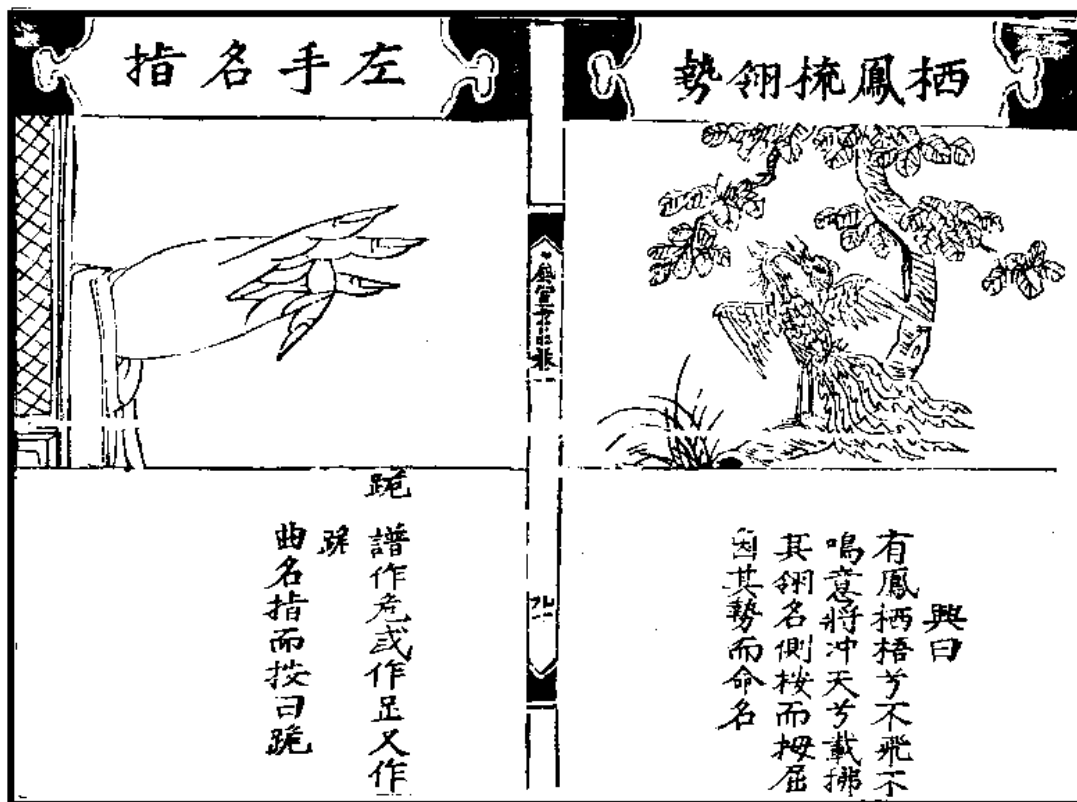 栖鳳梳翎勢
興曰
有鳳栖梧兮不飛不
鳴意將冲天兮載拂
其翎名側按而拇屈
因其勢而命名
左手名指
跪 譜作危或作足又作
曲名指而按曰跪